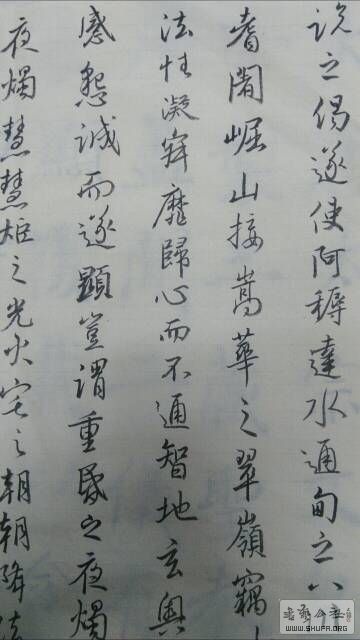 说之偈遂使阿耨達水通甸之八
耆闍崛山接嵩華之翠嶺竊
法性凝寂靡歸心而不通智地玄奥
感恳誠而遂顯豈謂重昏之夜燭
夜燭慧慧炬之光火宅之朝朝降法
WWW.SHUFA.ORG